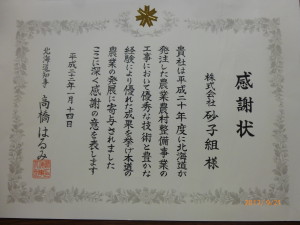 感謝状
株式会社 砂子組 様
貴社は平成二十年度に北海道が
発注した農業農村整備事業の
工事において優秀な技術と豊かな
経験により優れた成果を挙げ本道の
農業の発展に寄与されました
ここに深く感謝の意を表します
平成二十一年一月十四日
北海道知事 高橋はるみ